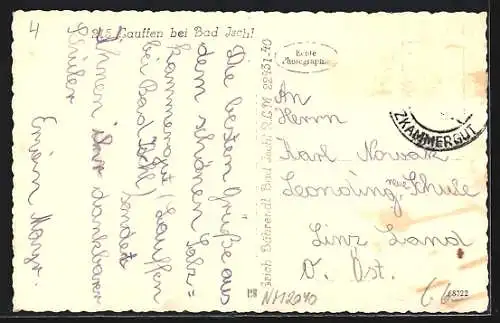 4
215 Lauffen bei Bad Ischl
Die besten Grüße aus
dem schönen Salz-
kammergut (Lauffen
bei Bad Ischl) sendet
Ihnen Ihr dankbarer
Schüler
Erwin Mayr.
Echte
Photographie
Erich Bährendt Bad Ischl R.G.M 22931-40
PB
ZKAMMERGUT
An
Herrn
Karl
Leonding, neue Schule
Linz Land
O. Öst.
NH2070
68122